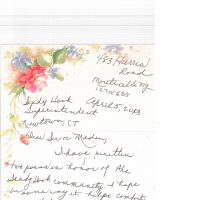 483 Harris
Road
Monticello NY
12701
April 5, 2013
Sandy Hook
Superintendent
Newtown, CT
Dear Sir or Madam,
I have written
two poems in honor of the
Sandy Hook community. I hope
in some way it helps comfort